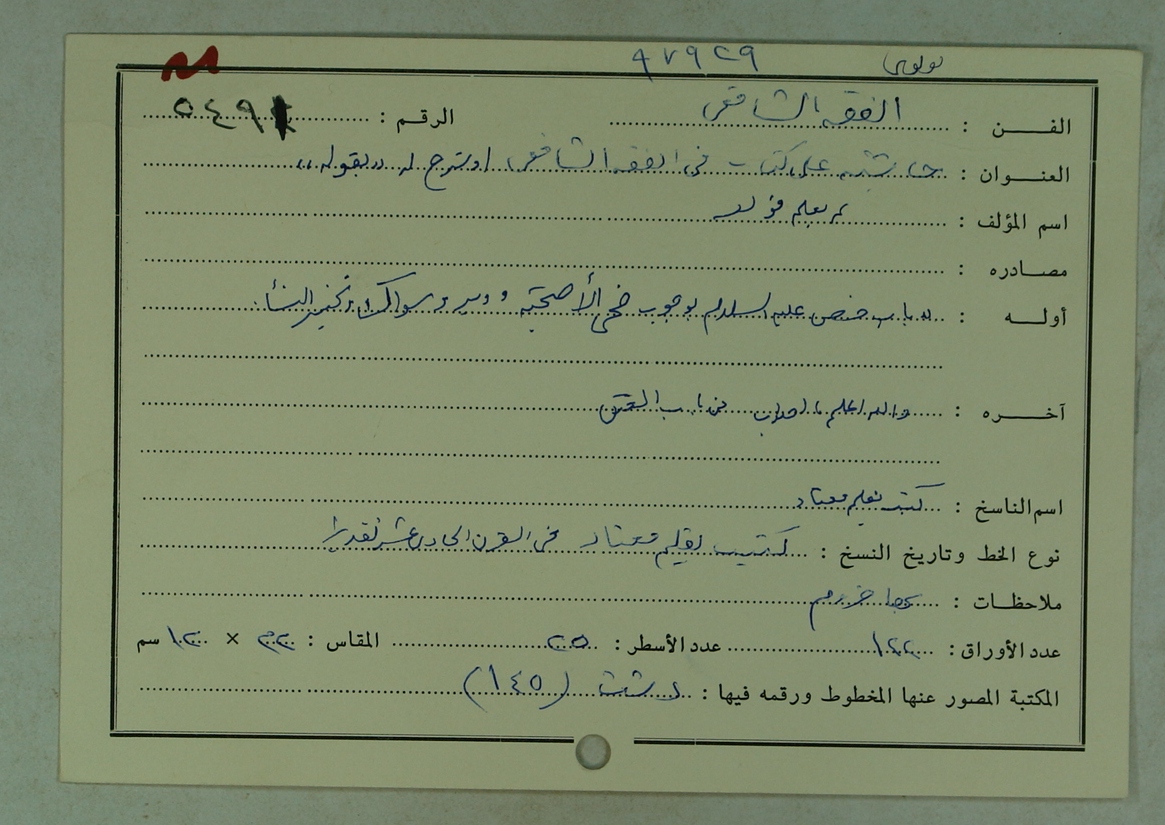 ٩٢٧٩
الفن : الفقه الشافعي الرقم : ٥٤٩
العنوان : حاشية على كتاب في الفقه الشافعي او شرح له بقوله
اسم المؤلف : لم يعلم مؤلفه
مصادره :
أوله : باب خص عليه السلام بوجوب ضحى الأضحية ووتر وسواك وتخيير النساء
آخره : والله اعلم بالصواب من باب العتق
اسم الناسخ : كتب بقلم معتاد
نوع الخط وتاريخ النسخ : كتبت بقلم معتاد في القرن الحادي عشر تقديرا
ملاحظات : بها خروم
عدد الأوراق : ١٢٢ عدد الأسطر : ٢٥ المقاس : × سم
المكتبة المصور عنها المخطوط ورقمه فيها : دشت (١٤٥)